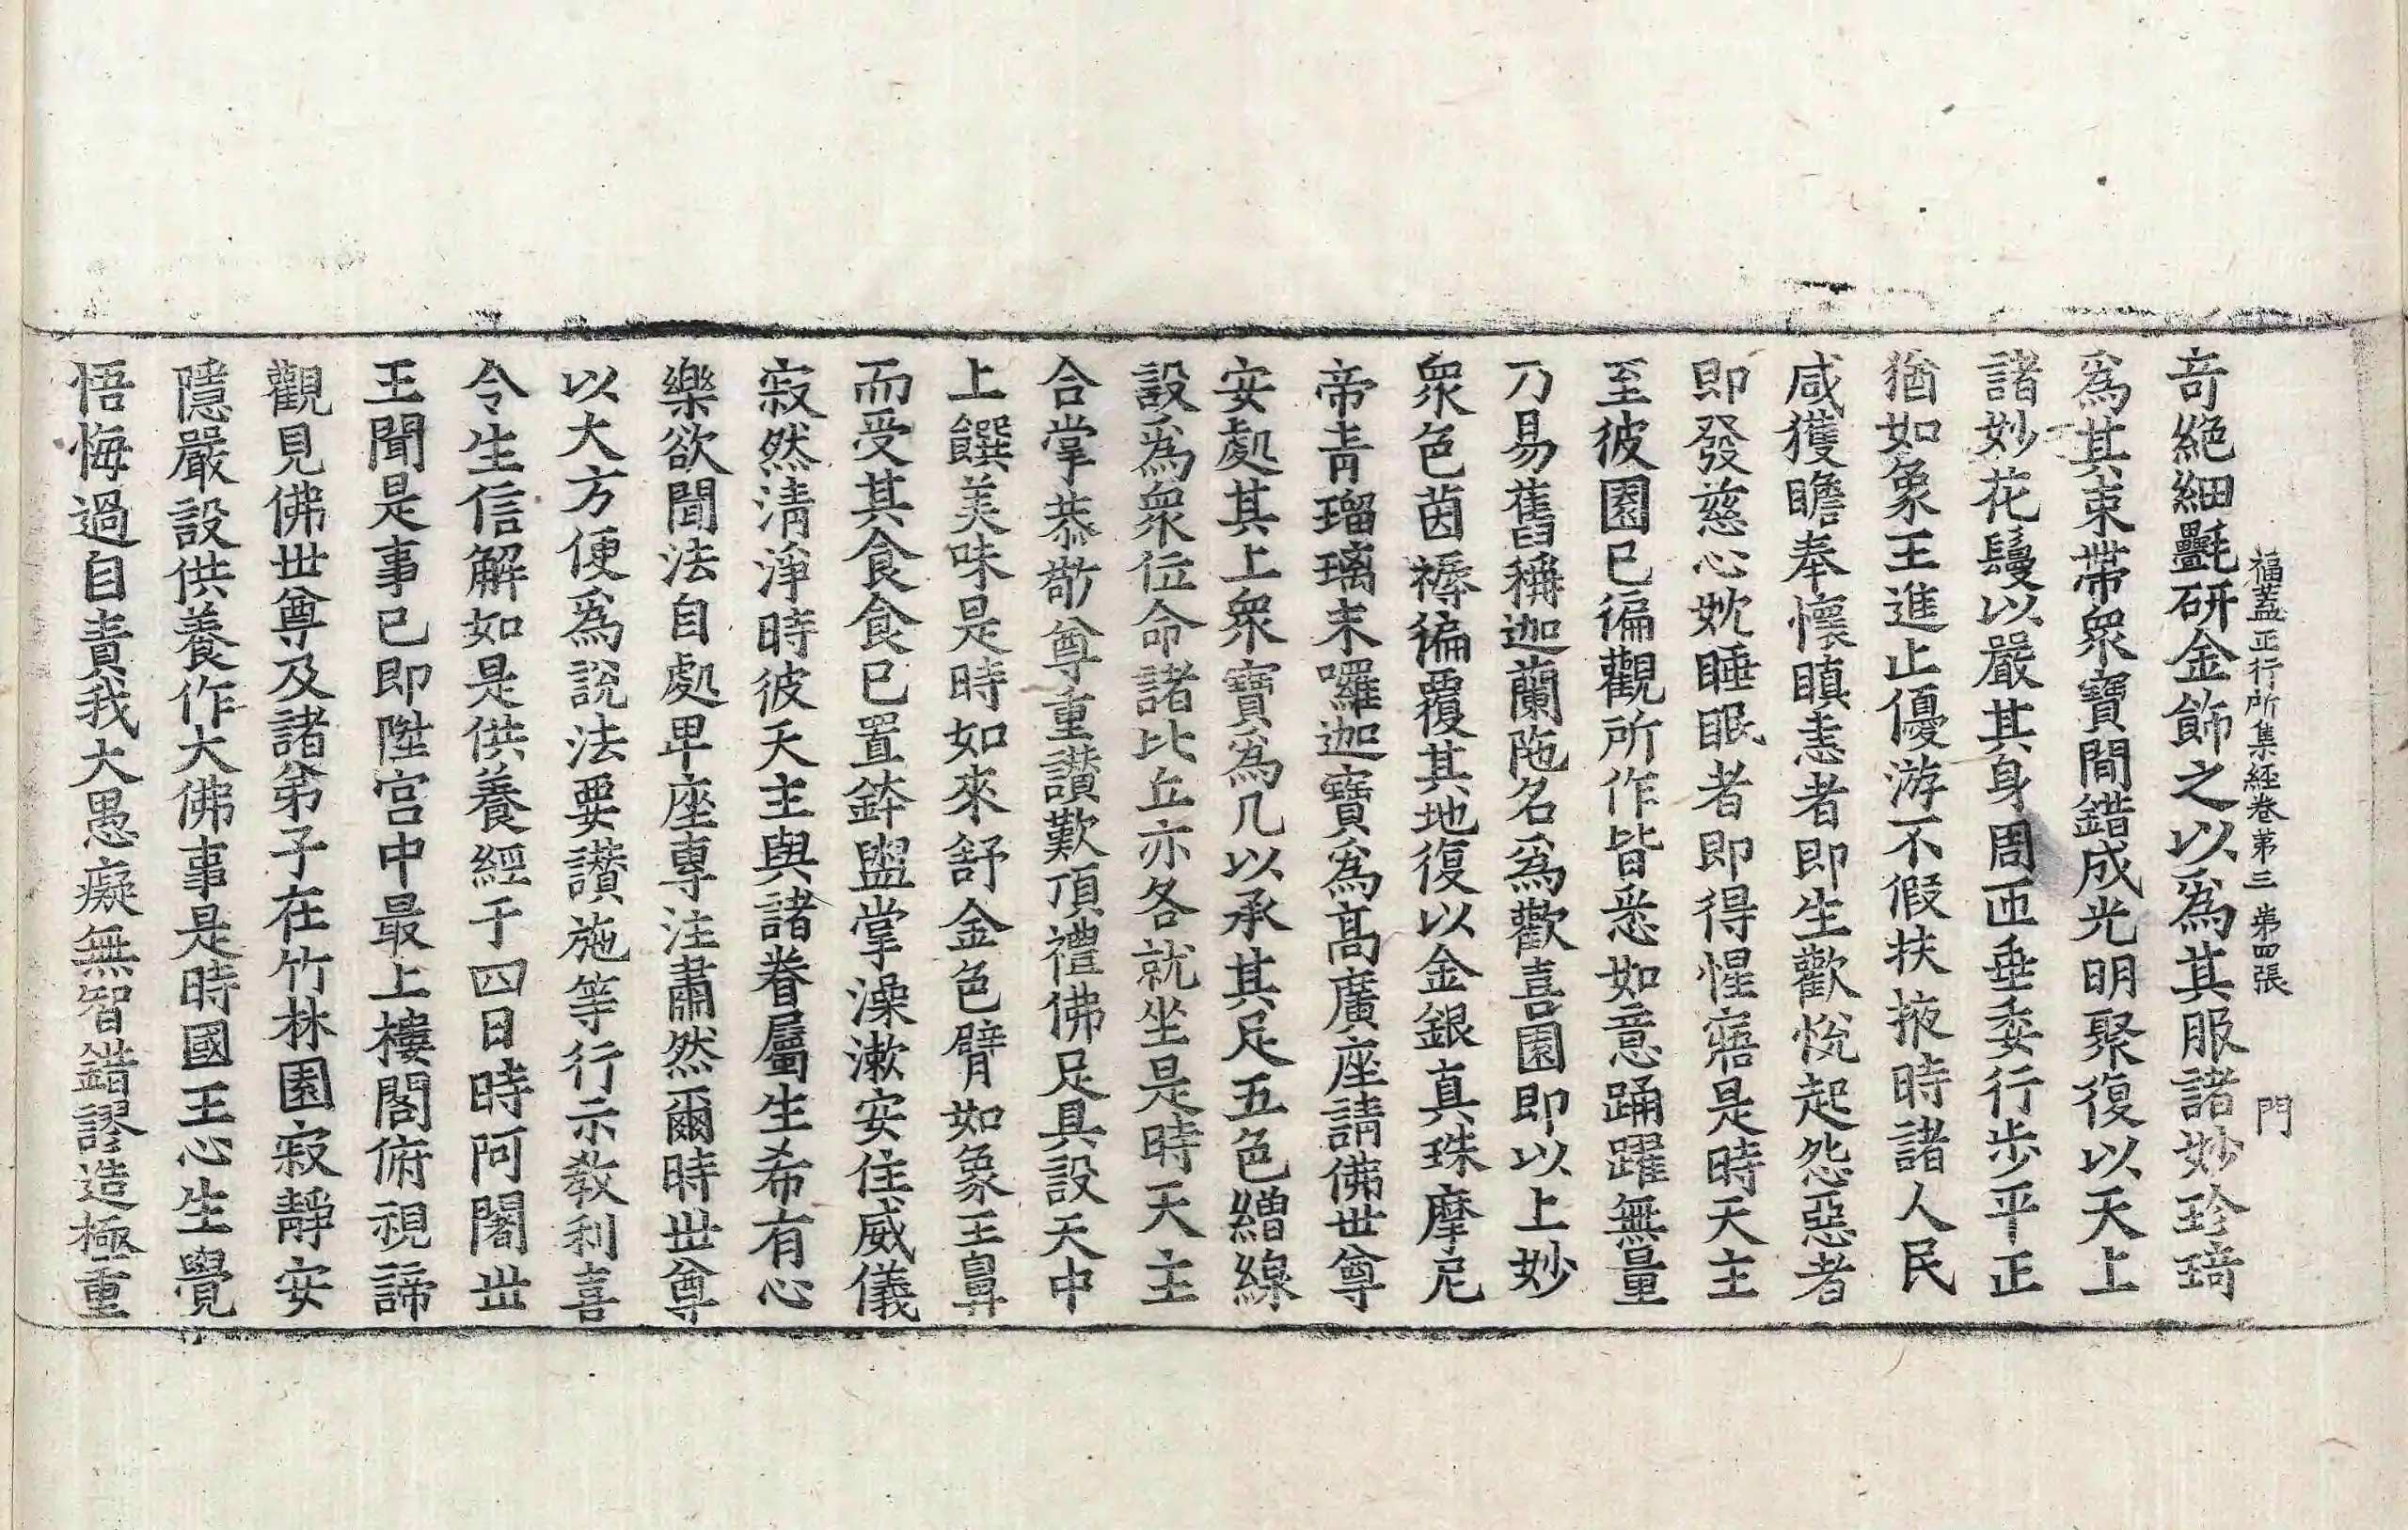 福蓋正行所集經卷第三 第四張 門
竒絕細㲲研金飾之以爲其服諸妙珍琦
爲其束帶衆寶間錯成光明聚復以天上
諸妙花鬘以嚴其身周匝垂委行步平正
猶如象王進止優游不假扶掖時諸人民
咸獲瞻奉懷瞋恚者即生歡悅起怨惡者
即發慈心躭睡眠者即得惺寤是時天主
至彼園已徧觀所作皆悉如意踊躍無量
乃易舊稱迦蘭陁名爲歡喜園即以上妙
衆色茵褥徧覆其地復以金銀真珠摩尼
帝青瑠璃末囉迦寶爲高廣座請佛世尊
安處其上衆寶爲几以承其足五色繒線
設爲衆位命諸比丘亦各就坐是時天主
合掌恭敬尊重讃歎頂禮佛足具設天中
上饌美味是時如來舒金色臂如象王鼻
而受其食食已置鉢盥掌澡漱安住威儀
寂然清淨時彼天主與諸眷屬生希有心
樂欲聞法自處卑座專注肅然爾時世尊
以大方便爲說法要讃施等行示教利喜
令生信解如是供養經于四日時阿闍世
王聞是事已即陞宮中最上樓閣俯視諦
觀見佛世尊及諸弟子在竹林園寂靜安
隱嚴設供養作大佛事是時國王心生覺
悟悔過自責我大愚癡無智錯謬造極重